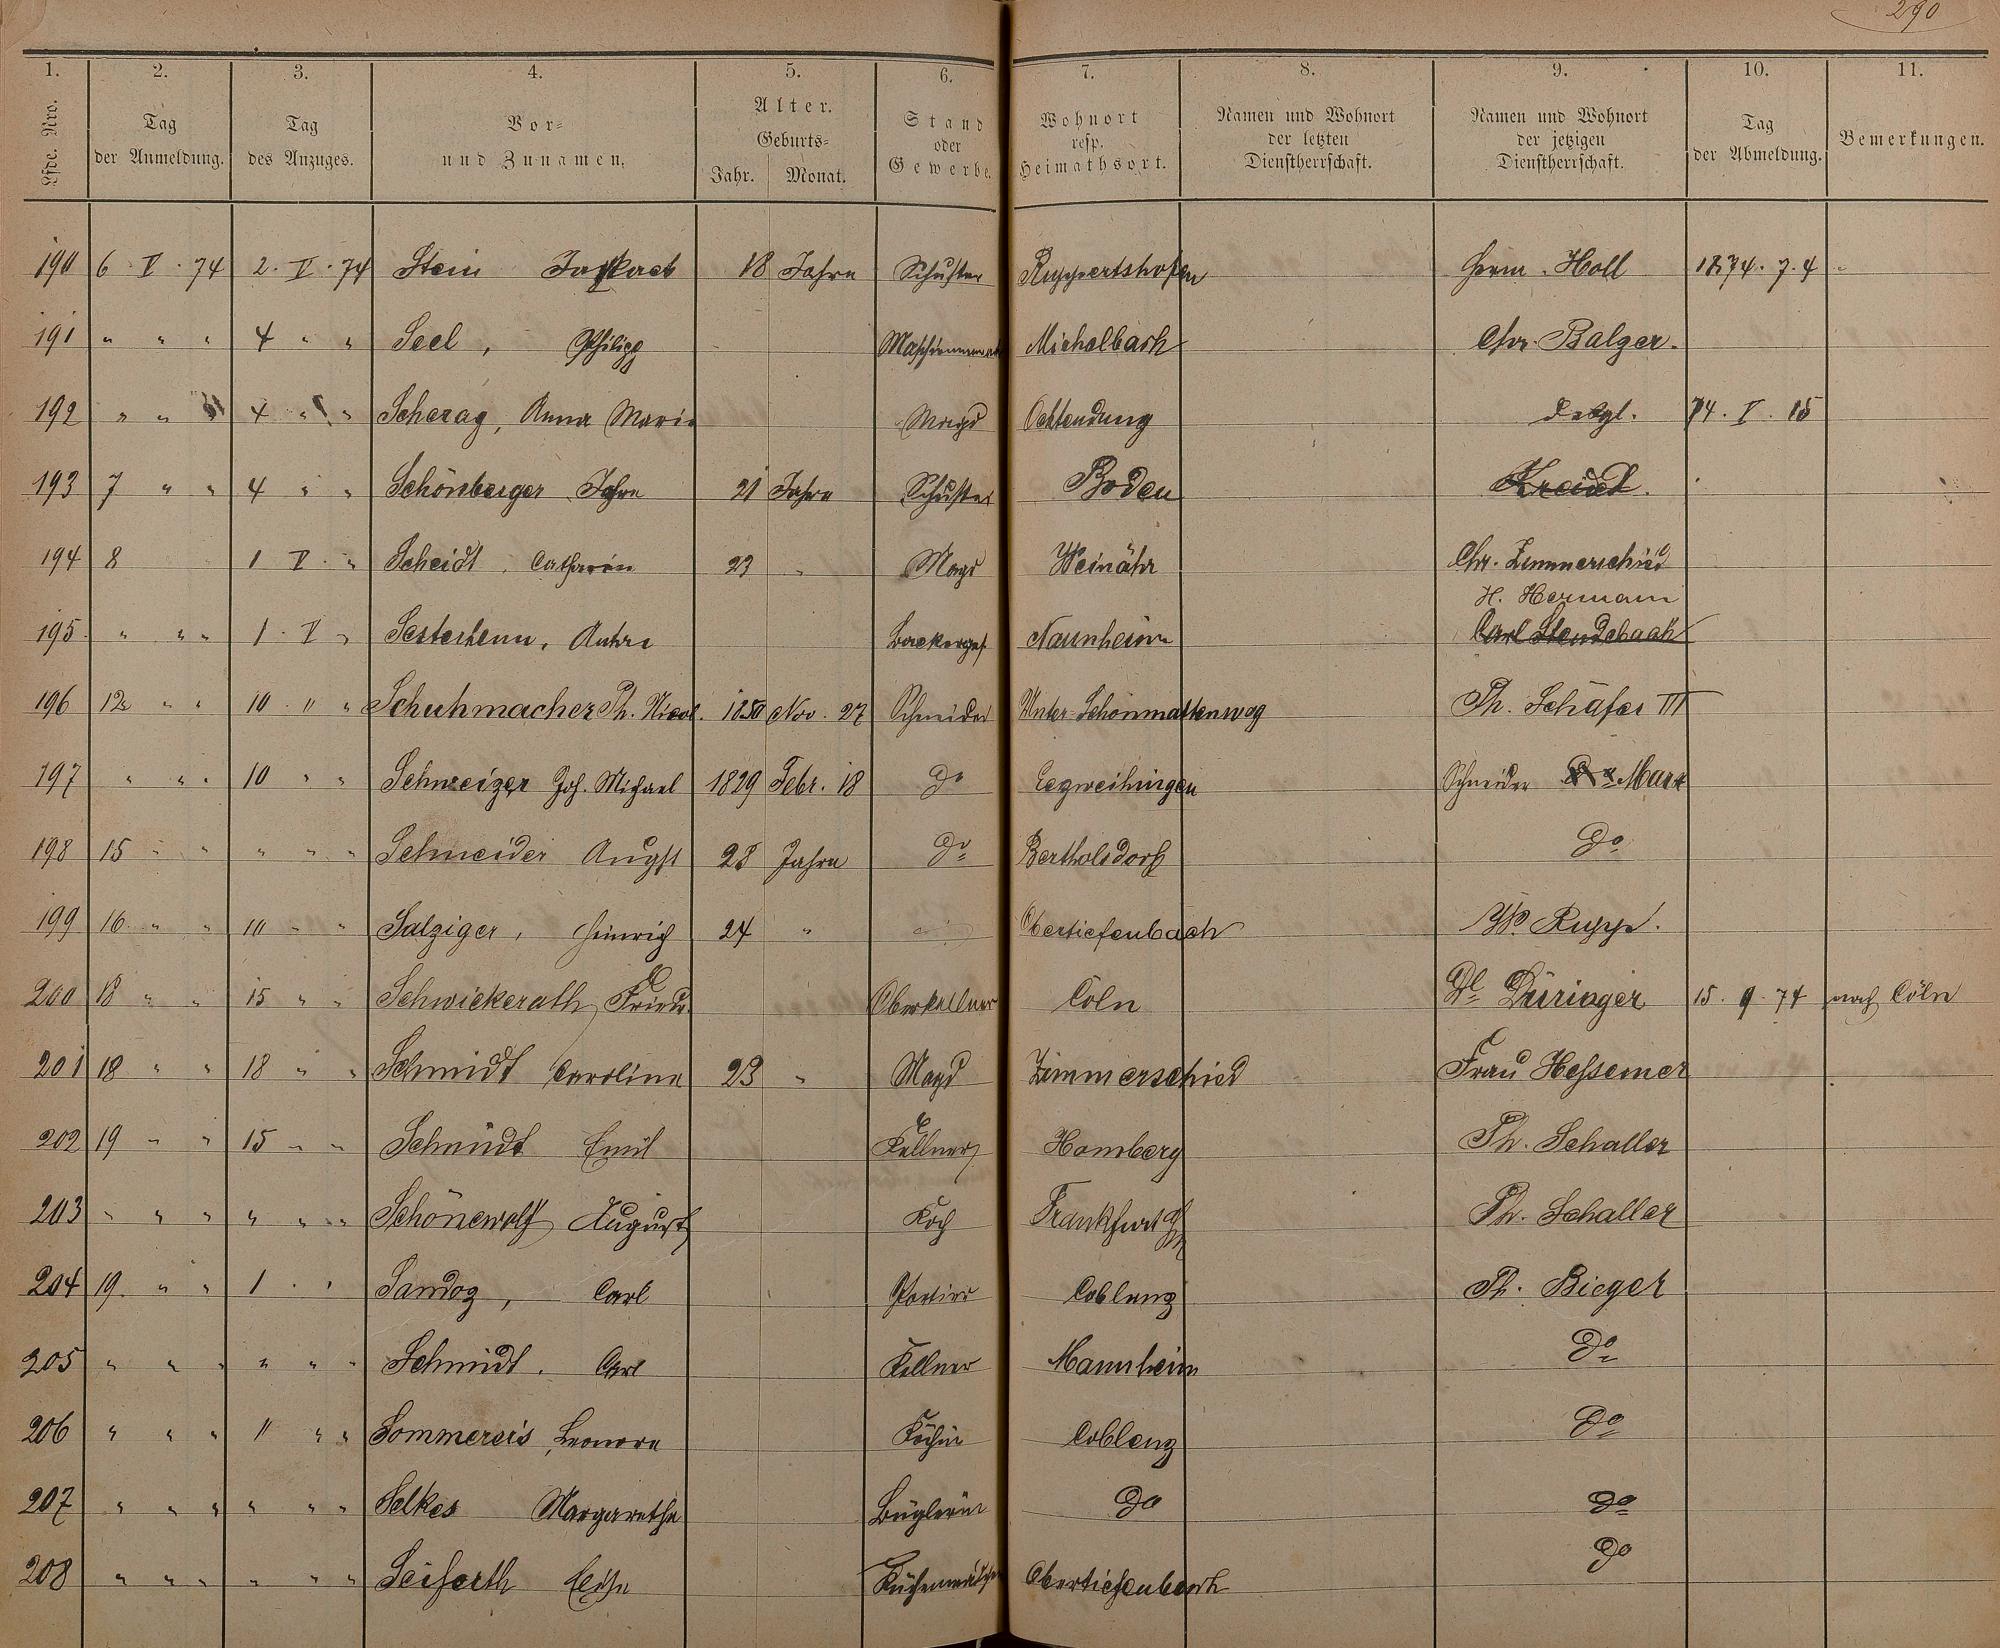 290
1. 2. 3. 4. 5. 6. 7. 8. 9. 10. 11.
Lfde. Nro. Tag der Anmeldung. Tag des Anzuges. Vor- und Zunamen. Alter. Geburts- Jahr. Monat. Stand oder Gewerbe. Wohnort resp. Heimathsort. Namen und Wohnort der letzten Dienstherrschaft. Namen und Wohnort der jetzigen Dienstherrschaft. Tag der Abmeldung. Bemerkungen.
190 6 V. 74 2. V. 74 Stein 18 Jahre Schuster Ruppertshofen Herm. Holl 1874. 7. 4
191 " " " 4 " " Seel, Philipp Michelbach Chr. Balzer.
192 " " " 4 " " Scherag, Anna Maria Magd Ochtendung desgl. 74. V. 15
193 7 " " 4 " " Schönberger 21 Jahre Schuster Boden
194 8 1 V. " Scheidt, Catharin 23 " Magd Weinähr Chr. Zimmerschied
H. Hermann
195. " " " 1. V " Sesterhenn, Anton Backerges. Naunheim
196 12 " " 10. " " Schuhmacher Ph. Nicol. 1850 Nov. 27 Schneider Unter-Schönmattenwag Ph. Schäfer III
197 " " " 10 " " Schweizer Joh. Michael 1829 Febr. 18 do Schneider Marx
198 15 " " " " " Schneider August 28 Jahre do Bertholsdorf do
199 16. " " 10 " " Salziger, Heinrich 24 " Obertiefenbach Rupp.
200 18 " " 15 " " Schwickerath, Friedr. Oberkellner Cöln Düringer 15. 9. 74 nach Cöln
201 18 " " 18 " " Schmidt Caroline 23 " Magd Zimmerschied Frau Hessemer
202 19 " " 15 " " Schmidt Emil Kellner Homberg Ph. Schaller
203 " " " " " " Schönewolf August Koch Frankfurt Ph. Schaller
204 19. " " 1 " " Sandoz, Carl Portier Coblenz Ph. Bieger
205 " " " " " " Schmidt. Carl Kellner Mannheim do
206 " " " " " " Sommereis, Leonore Köchin Coblenz do
207 " " " " " " Selkes Margaretha Büglerin do do
208 " " " " " " Seiferth Elise Küchenmädchen Obertiefenbach do